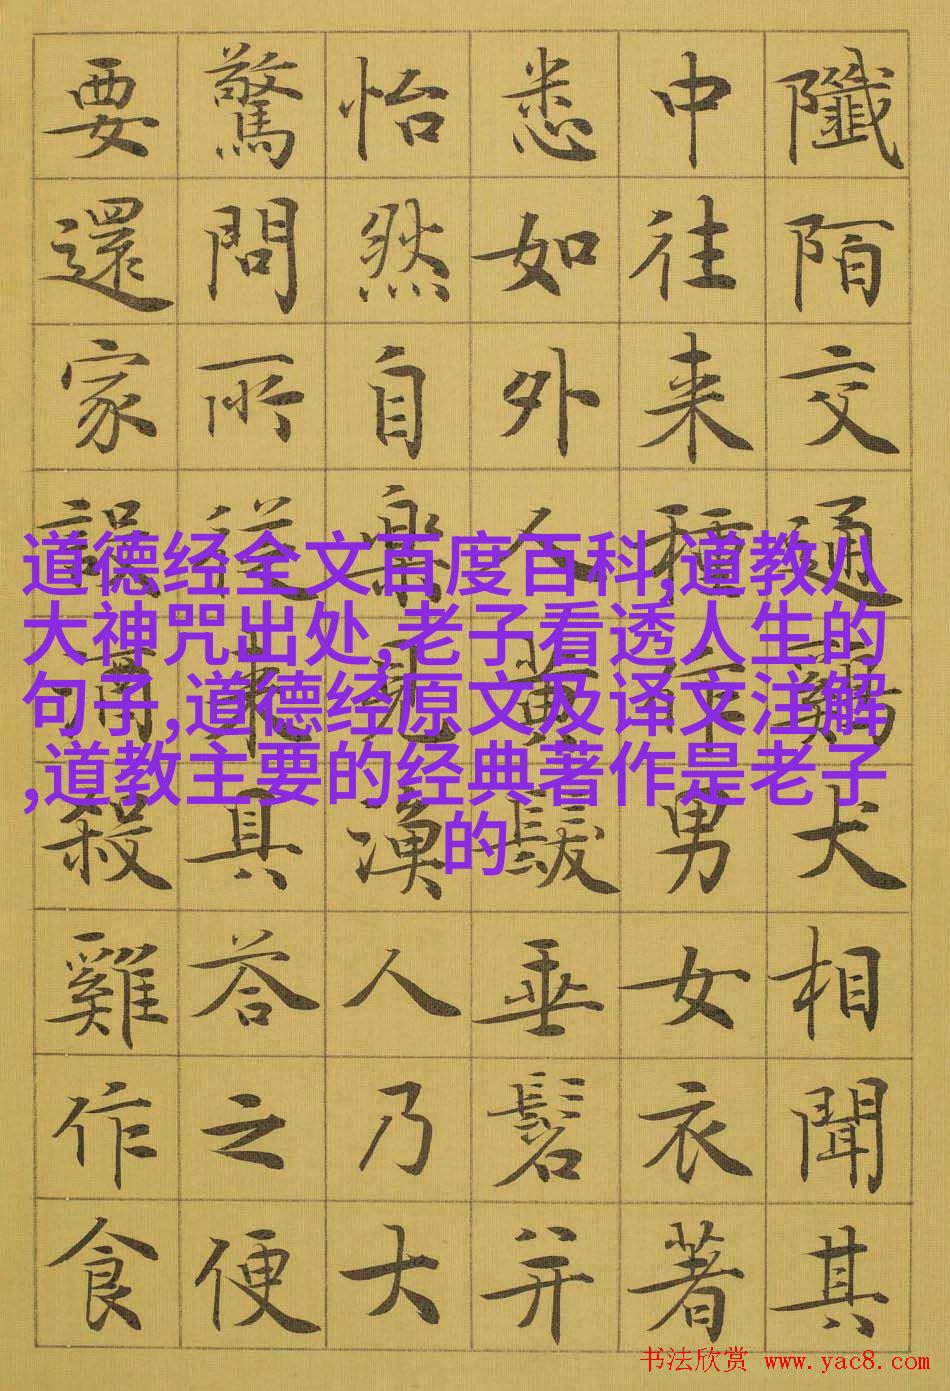 陌交通鷄犬相聞其
中往来種作男女衣著
悉如外人黄髮垂髫并
怡然自樂見漁人乃大
驚問所從来具荅之便
要還家設酒殺雞作食
道德经全文百度百科,道教八
大神咒出处,老子看透人生的
句子,道德经原文及译文注解
,道教主要的经典著作是老子
的
书法欣赏 www.yac8.com